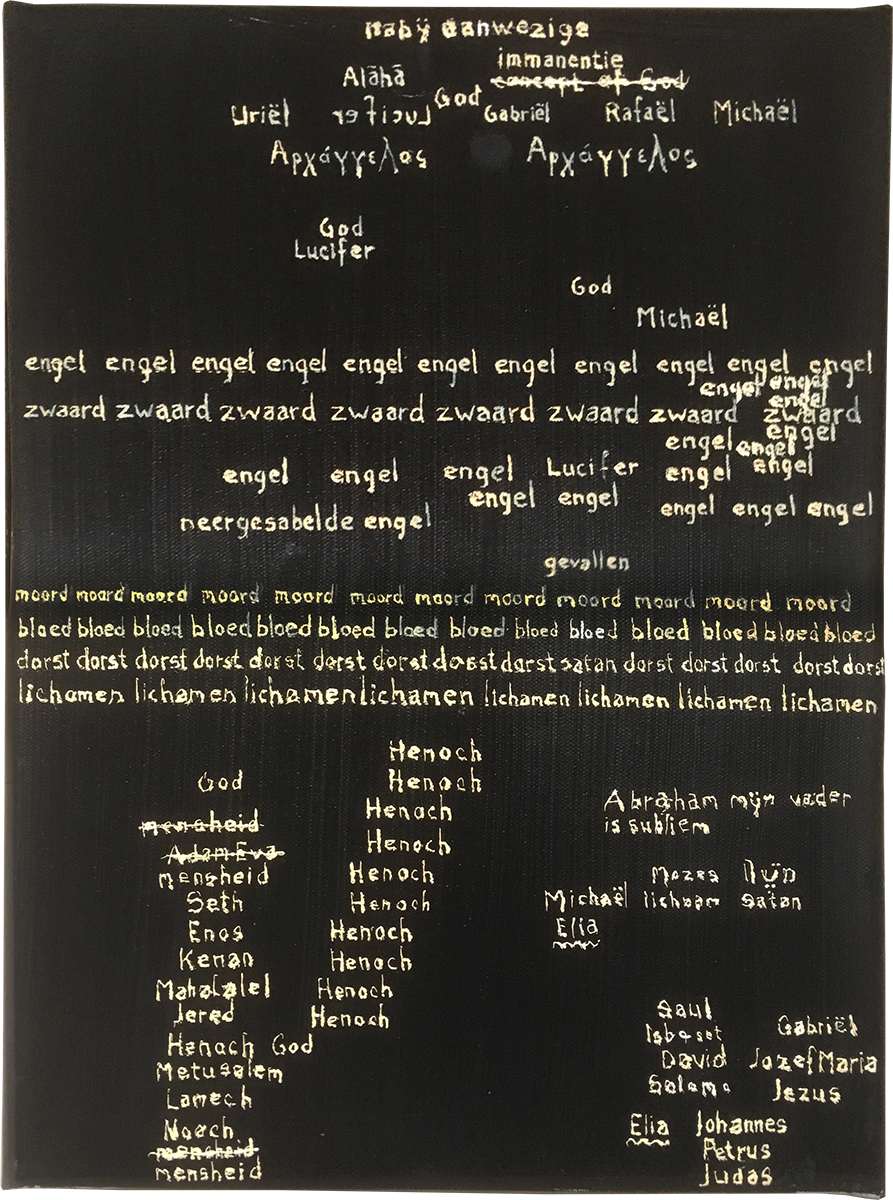 nabÿ aanwezige
immanentie
concept of God
Alāhā
God
Uriël Lucifer Gabriël Rafaël Michaël
Αρχάγγελος Αρχάγγελος
God
Lucifer
God
Michaël
engel engel engel engel engel engel engel engel engel engel engel
engel engel
engel
zwaard zwaard zwaard zwaard zwaard zwaard zwaard zwaard
engel engel
engel
engel engel engel Lucifer engel engel
engel engel
neergesabelde engel engel engel engel
gevallen
moord moord moord moord moord moord moord moord moord moord moord moord
bloed bloed bloed bloed bloed bloed bloed bloed bloed bloed bloed bloed bloed bloed
dorst dorst dorst dorst dorst dorst dorst dorst dorst satan dorst dorst dorst dorst dorst
lichamen lichamen lichamen lichamen lichamen lichamen lichamen lichamen
Henoch
God Henoch
Henoch
mensheid
Adam Eva Henoch
mensheid Henoch
Seth Henoch
Enos Henoch
Kenan Henoch
Mahalalel Henoch
Jered Henoch
Henoch God
Metusalem
Lamech
Noach
mensheid
mensheid
Abraham mÿn vader
is subliem
Mozes
Michaël lichaam satan
Elia
Saul
Isboset Gabriël
David Jozef Maria
Salomo Jezus
Elia Johannes
Petrus
Judas